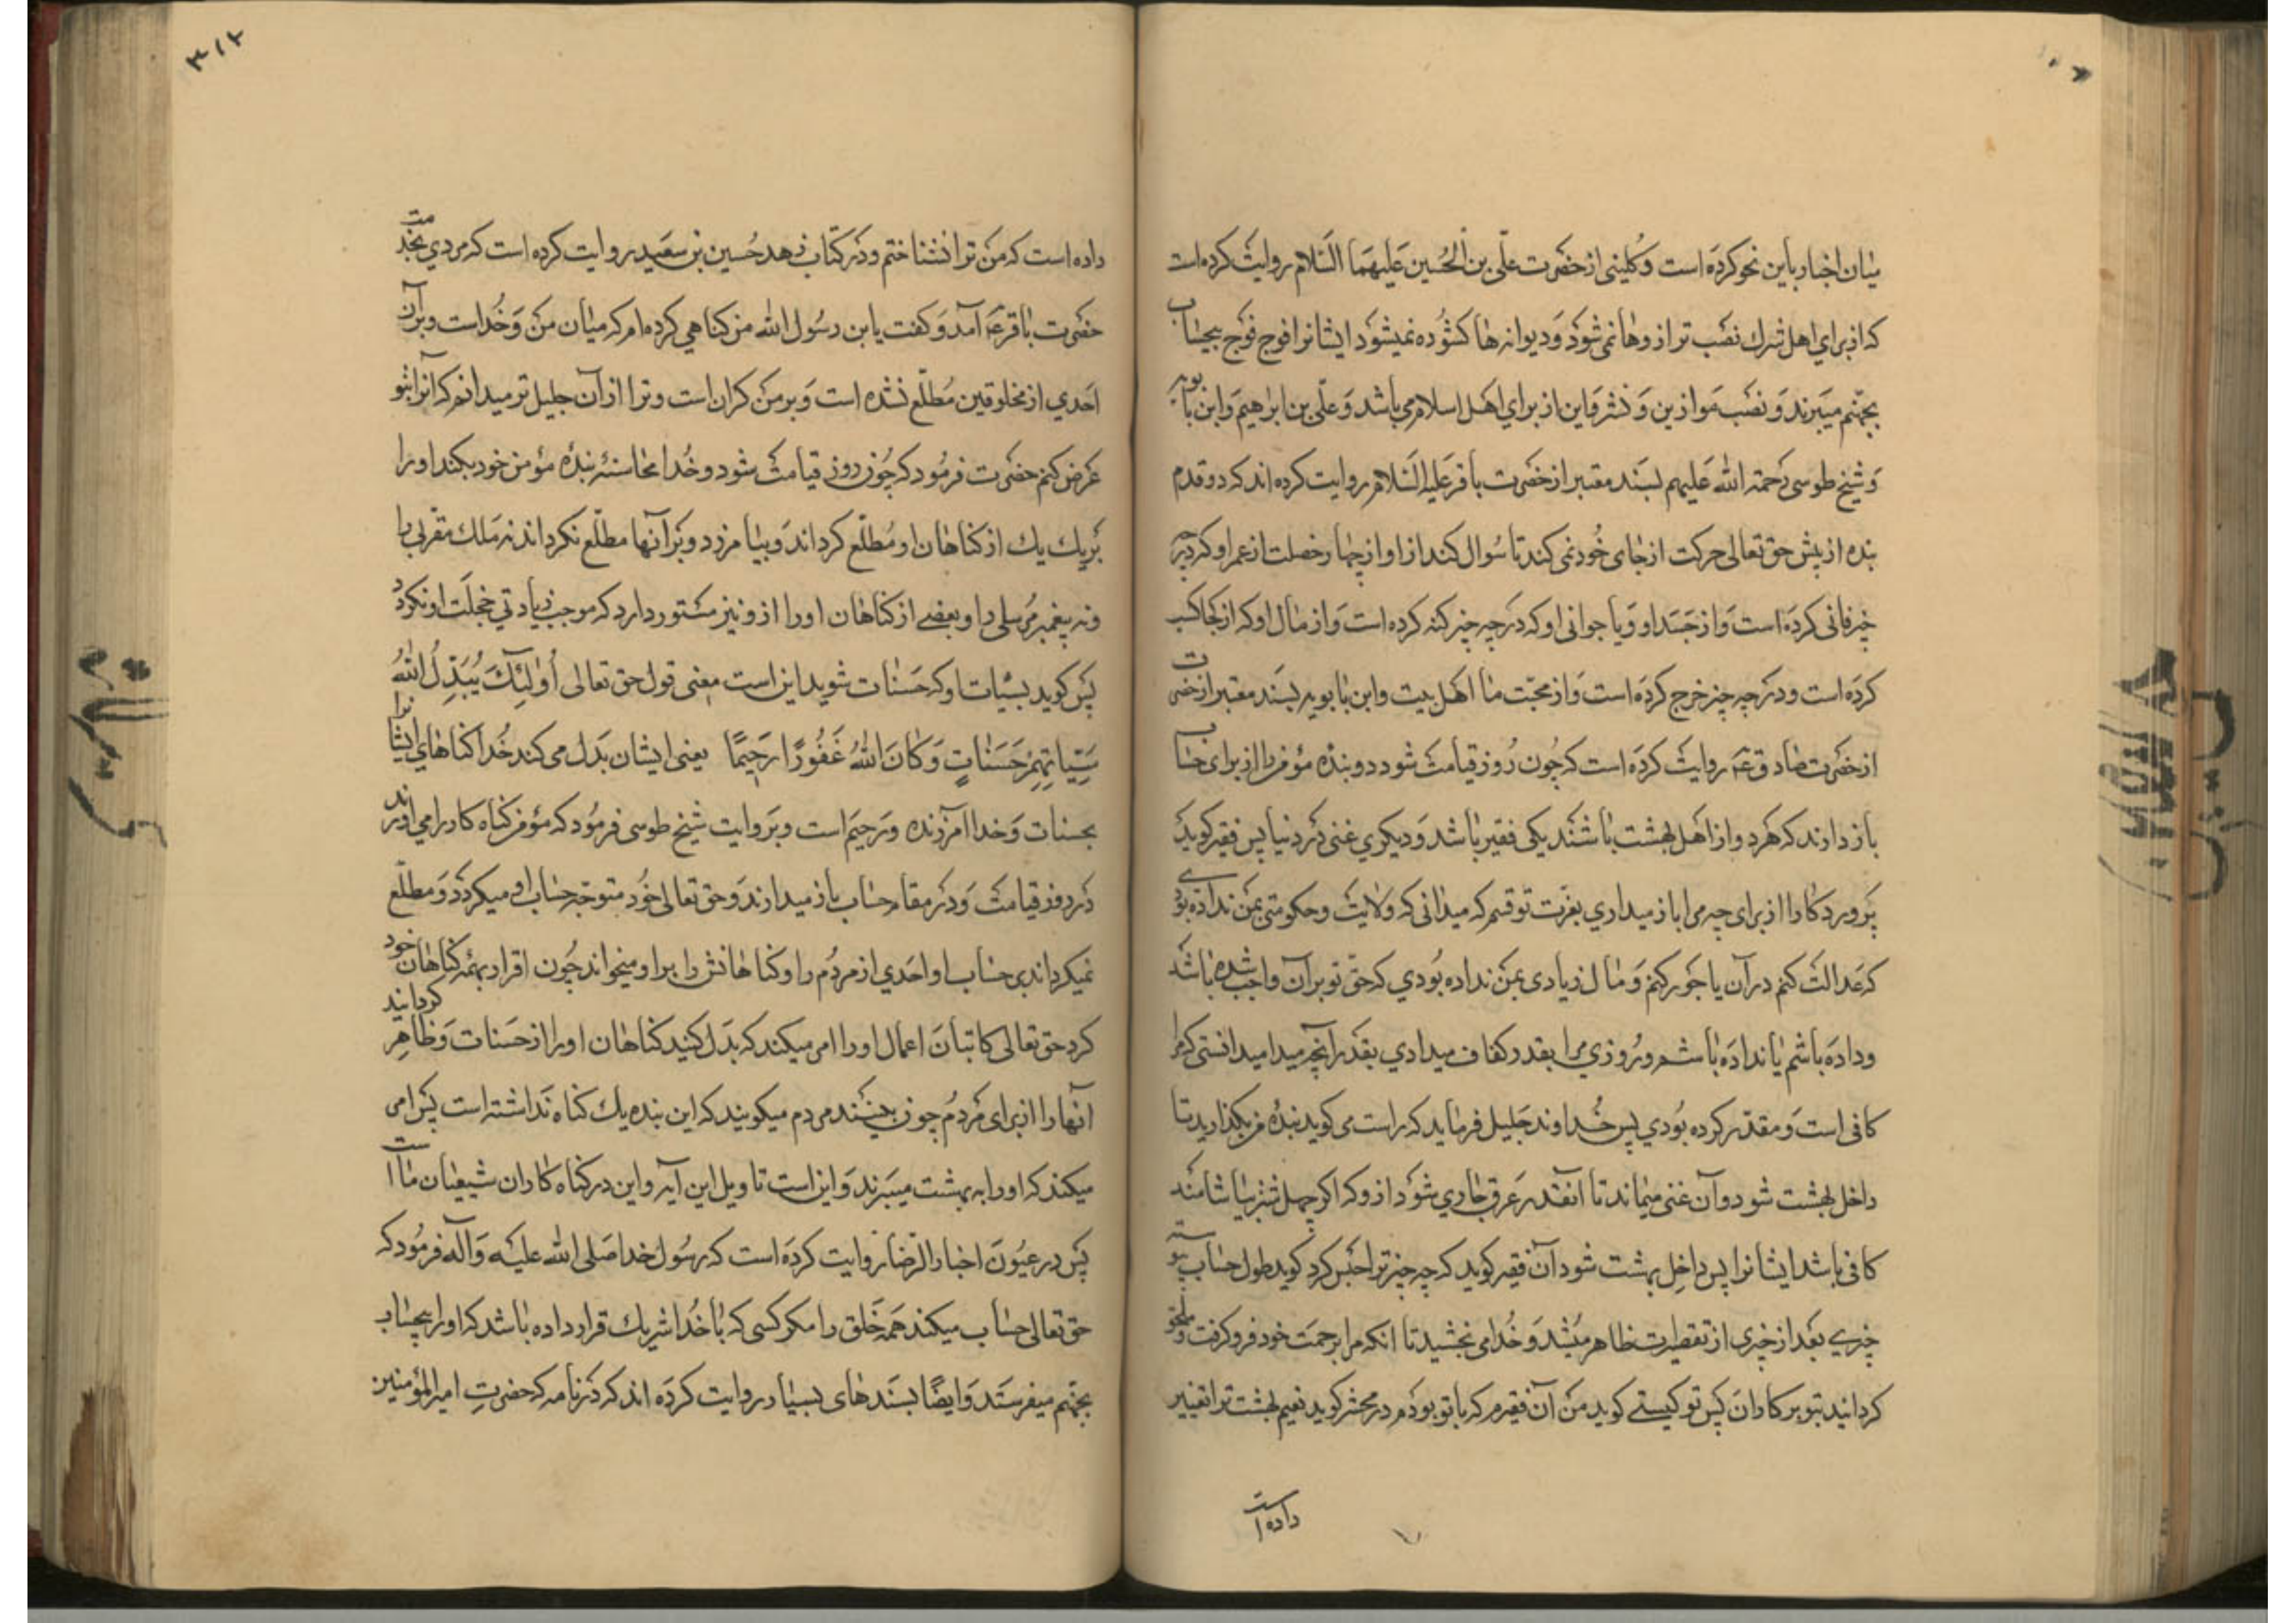 میان اخبار باین نحو کرده است و کلینی از حضرت علی بن الحسین علیهما السلام روایت کرده است
که از برای اهل شرک نصب ترازوها نمی شود و دیوانها کشوده نمیشود ایشانرا فوج فوج بیحساب
بجهنم میبرند و نصب موازین و نشر دواوین از برای اهل اسلام می باشد و علی بن ابراهیم و ابن بابویه
و شیخ طوسی رحمة الله علیهم بسند معتبر از حضرت باقر علیه السلام روایت کرده اند که دو قدم
بنده از پیش حق تعالی حرکت از جای خود نمی کند تا سوال کند از او از چهار خصلت از عمر او که در چه
چیز فانی کرده است و از جسد او و یا جوانی او که در چه چیز کهنه کرده است و از مال او که از کجا کسب
کرده است و در چه چیز خرج کرده است و از محبت ما اهل بیت و ابن بابویه بسند معتبر از حضرت
از حضرت صادق ع روایت کرده است که چون روز قیامت شود دو بنده مؤمن را از برای حساب
باز دارند که هر دو از اهل بهشت باشند یکی فقیر باشد و دیکری غنی در دنیا پس فقیر کوید
پروردکارا از برای چه مرا باز میداری بعزت تو قسم که میدانی که ولایت و حکومتی بمن نداده بودی
که عدالت کنم در آن یا جور کنم و مال زیادی بمن نداده بودی که حق تو بر آن واجب شده باشد
و داده باشم یا نداده باشم و روزی مرا بقدر کفاف میدادی بقدر آنچه میدا میدانستی که مرا
کافی است و مقدر کرده بودی پس خداوند جلیل فرماید که راست می کوید بنده من بکذارید تا
داخل بهشت شود و آن غنی میماند تا آنقدر عرق جاری شود از و که اکر چهل شتر بیاشامند
کافی باشد ایشانرا پس داخل بهشت شود آن فقیر کوید که چه چیز ترا حبس کرد کوید طول حساب پیوسته
چیزی بعد از چیزی از تقصیرات ظاهر میشد و خدا می بخشید تا انکه مرا برحمت خود فرو کرفت و ملحق
کردانید بتوبه کاران پس تو کیستی کوید من آن فقیرم که با تو بودم در محشر کوید نعیم بهشت ترا تغییر
داده است
۳۱۲
داده است که من ترا نشناختم و در کتاب زهد حسین بن سعید روایت کرده است که مردی بخدمت
حضرت باقر ع آمد و کفت یابن رسول الله من کناهی کرده ام که میان من و خداست و بر آن
احدی از مخلوقین مطلع نشده است و بر من کران است و ترا از آن جلیل تر میدانم که آنرا بتو
عرض کنم حضرت فرمود که چون روز قیامت شود و خدا محاسبه بنده مؤمن خود بکند او را
بر یک یک از کناهان او مطلع کرداند و بیامرزد و بر آنها مطلع نکرداند نه ملک مقربی را
و نه پیغمبر مرسلی را و بعضے از کناهان او را از و نیز مستور دارد که موجب زیادتی خجلت او نکردد
پس کوید بسیئات او که حسنات شوید این است معنی قول حق تعالی أُولئِكَ يُبَدِّلُ اللهُ
سَيِّئَاتِهِمْ حَسَنَاتٍ وَكَانَ اللهُ غَفُورًا رَحِيمًا یعنی ایشان بدل می کند خدا کناهای ایشانرا
بحسنات و خدا آمرزنده و رحیم است و بروایت شیخ طوسی فرمود که مؤمن کناه کار را می اورند
در روز قیامت و در مقام حساب باز میدارند و حق تعالی خود متوجه حساب او میکردد و مطلع
نمیکرداند بر حساب او احدی از مردم را و کناهانش را بر او میخواند چون اقرار بهمه کناهان خود
کرد حق تعالی کاتبان اعمال او را امر میکند که بدل کنید کناهان او را از حسنات و ظاهر کردانید
آنها را از برای مردم چون بینند مردم میکویند که این بنده یک کناه نداشته است پس امر
میکند که او را به بهشت میبرند و این است تاویل این آیه و این در کناه کاران شیعیان ما است
پس در عیون اخبار الرضا روایت کرده است که رسول خدا صلی الله علیه و آله فرمود که
حق تعالی حساب میکند همه خلق را مکر کسی که با خدا شریک قرار داده باشد که او را بیحساب
بجهنم میفرستد و ایضا بسندهای بسیار روایت کرده اند که در نامه که حضرت امیر المؤمنین